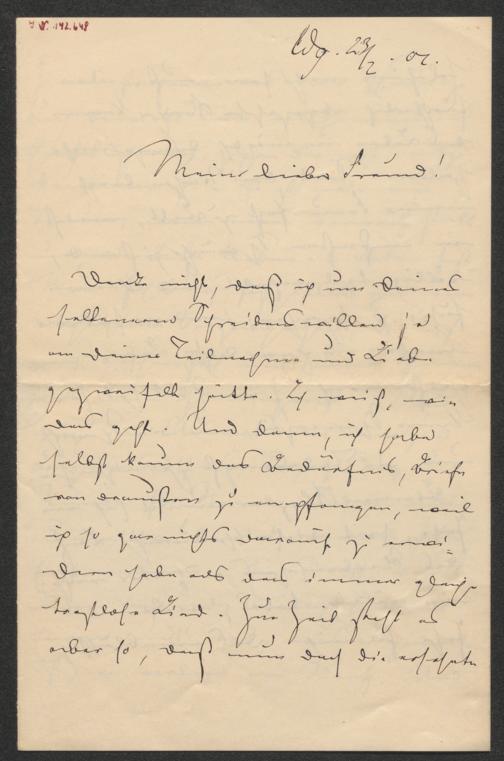 I.N. 142.648
Ldg. 23/2. 02.
Mein lieber Freund!
Denke nicht, daß ich um Deines
selteneren Schreibens willen je
an Deiner Teilnahme und Liebe
gezweifelt hätte. Ich weiß, wie
das geht. Und dann, ich habe
selbst kaum das Bedürfnis, Briefe
von draußen zu empfangen, weil
ich so gar nichts darauf zu erwi-
dern habe als das immer gleich
trostlose Lied. Zur Zeit steht es
aber so, daß nun doch die ersehnte